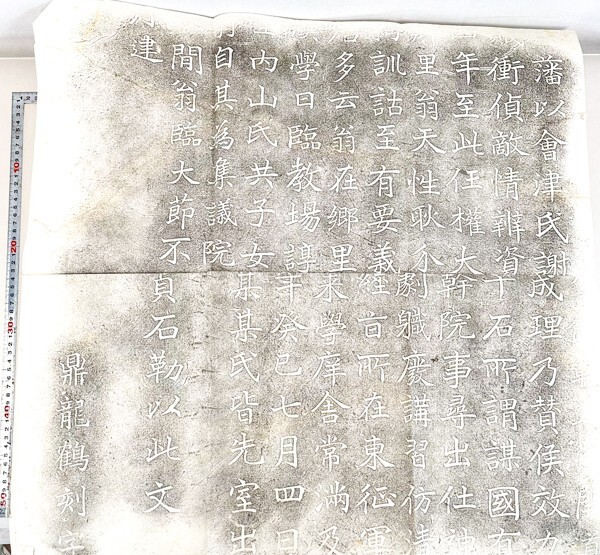 藩以會津氏謝成理乃賛侯效力
衝偵敵情辨資十石所謂謀國有
年至此王權大幹院事尋出仕神
里翁天性耿介劇職廢講習仿
訓詁至有要義經言所在東征軍
多云翁在鄉里來學庠舎常滿及
學曰臨教場諄年癸巳七月四日
內山氏共子女某某氏皆先室出
自其為集議院
間翁臨大節不貞石勒以此文
建
鼎龍鶴刻字